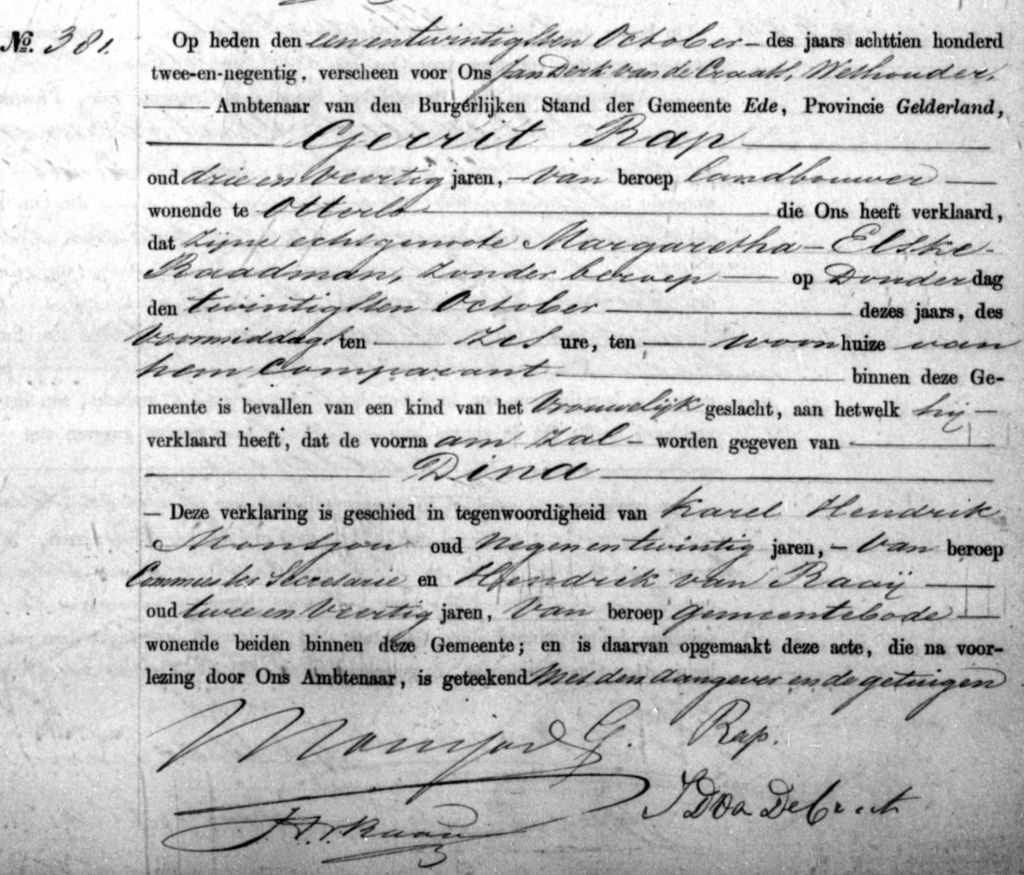 No. 381.
Op heden den eenentwintigsten October - des jaars achttien honderd
twee-en-negentig, verscheen voor Ons Jan Derk van de Craats, Wethouder,
Ambtenaar van den Burgerlijken Stand der Gemeente Ede, Provincie Gelderland,
Gerrit Rap
oud drie en veertig jaren, - van beroep landbouwer
wonende te Otterlo die Ons heeft verklaard,
dat zijne echtgenoote Margaretha - Elske -
Raadman, zonder beroep op Donderdag
den twintigsten October dezes jaars, des
voormiddags ten zes ure, ten woonhuize van
hem comparant binnen deze Ge-
meente is bevallen van een kind van het vrouwelijk geslacht, aan hetwelk hij
verklaard heeft, dat de voornaam zal - worden gegeven van
Dina
— Deze verklaring is geschied in tegenwoordigheid van Karel Hendrik
Monsjou oud negen en twintig jaren, - van beroep
Commies ter Secretarie en Hendrik van Raaij
oud twee en veertig jaren, van beroep gemeentebode
wonende beiden binnen deze Gemeente; en is daarvan opgemaakt deze acte, die na voor-
lezing door Ons Ambtenaar, is geteekend met den aangever en de getuigen
Monsjou G. Rap.
H. v. Raaij